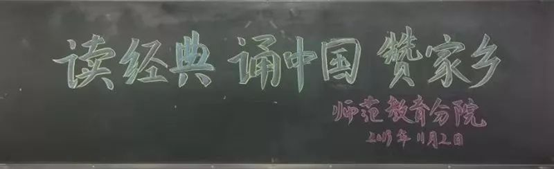 读经典 诵中国 赞家乡
师范教育分院
年11月2日